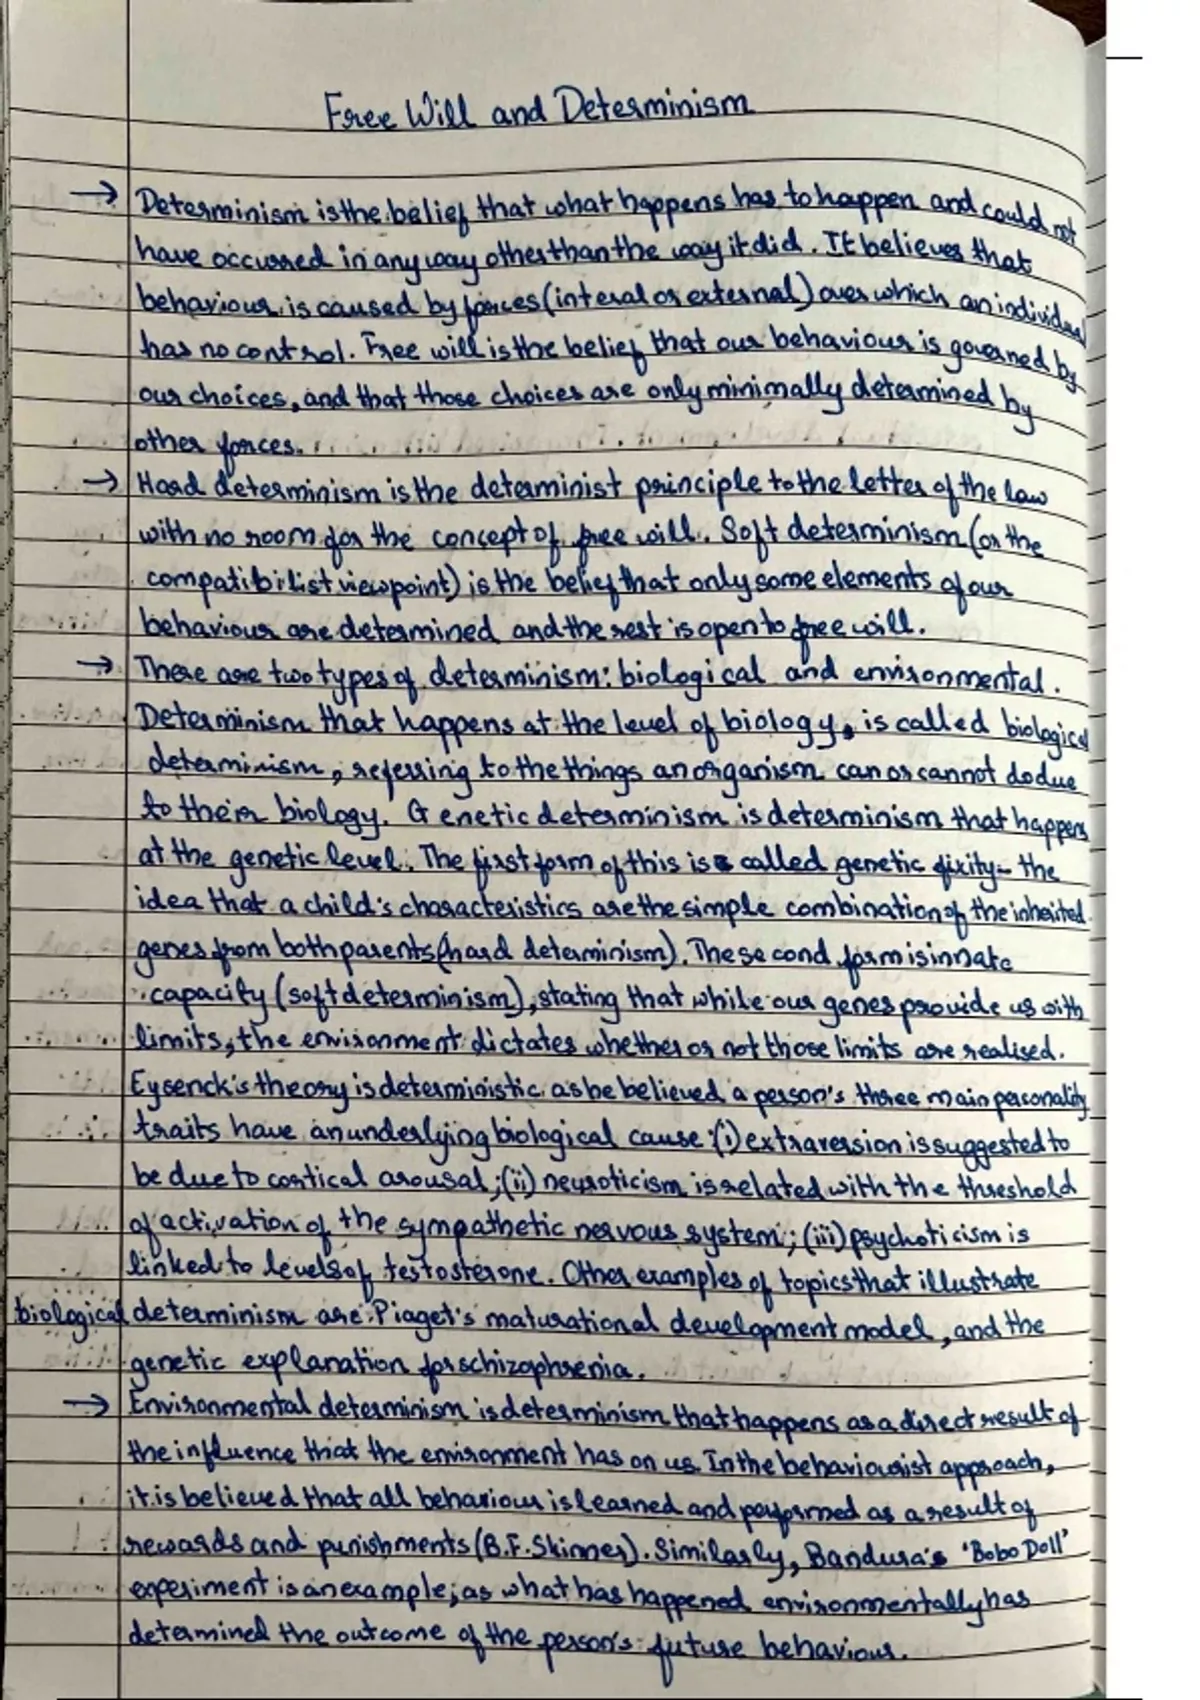 Free Will and Determinism
→ Determinism is the belief that what happens has to happen and could not
have occurred in any way other than the way it did. It believes that
behaviour is caused by forces (interal or external) over which an individual
has no control. Free will is the belief that our behaviour is governed by
our choices, and that those choices are only minimally determined by
other forces.
→ Hard determinism is the determinist principle to the letter of the law
with no room for the concept of free will. Soft determinism (or the
compatibilist viewpoint) is the belief that only some elements of our
behaviour are determined and the rest is open to free will.
→ There are two types of determinism: biological and environmental.
Determinism that happens at the level of biology, is called biological
determinism, referring to the things an organism can or cannot do due
to their biology. Genetic determinism is determinism that happens
at the genetic level. The first form of this is called genetic fixity - the
idea that a child's characteristics are the simple combination of the inherited
genes from both parents (hard determinism). The second form is innate
capacity (soft determinism), stating that while our genes provide us with
limits, the environment dictates whether or not those limits are realised.
Eysenck's theory is deterministic as he believed a person's three main personality
traits have an underlying biological cause: (i) extraversion is suggested to
be due to cortical arousal; (ii) neuroticism is related with the threshold
of activation of the sympathetic nervous system; (iii) psychoticism is
linked to levels of testosterone. Other examples of topics that illustrate
biological determinism are: Piaget's maturational development model, and the
genetic explanation for schizophrenia.
→ Environmental determinism is determinism that happens as a direct result of
the influence that the environment has on us. In the behaviourist approach,
it is believed that all behaviour is learned and performed as a result of
rewards and punishments (B.F. Skinner). Similarly, Bandura's 'Bobo Doll'
experiment is an example; as what has happened environmentally has
determined the outcome of the person's future behaviour.